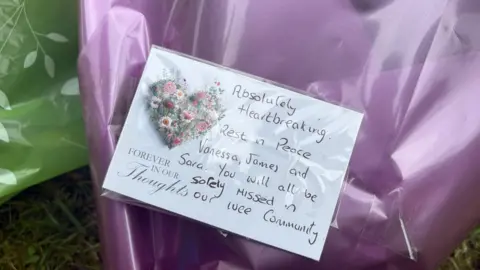 Absolutely
Heartbreaking.
Rest in Peace
Vanessa, James and
Sara You will all be
sorely missed in
our wee Community
FOREVER
IN OUR
Thoughts